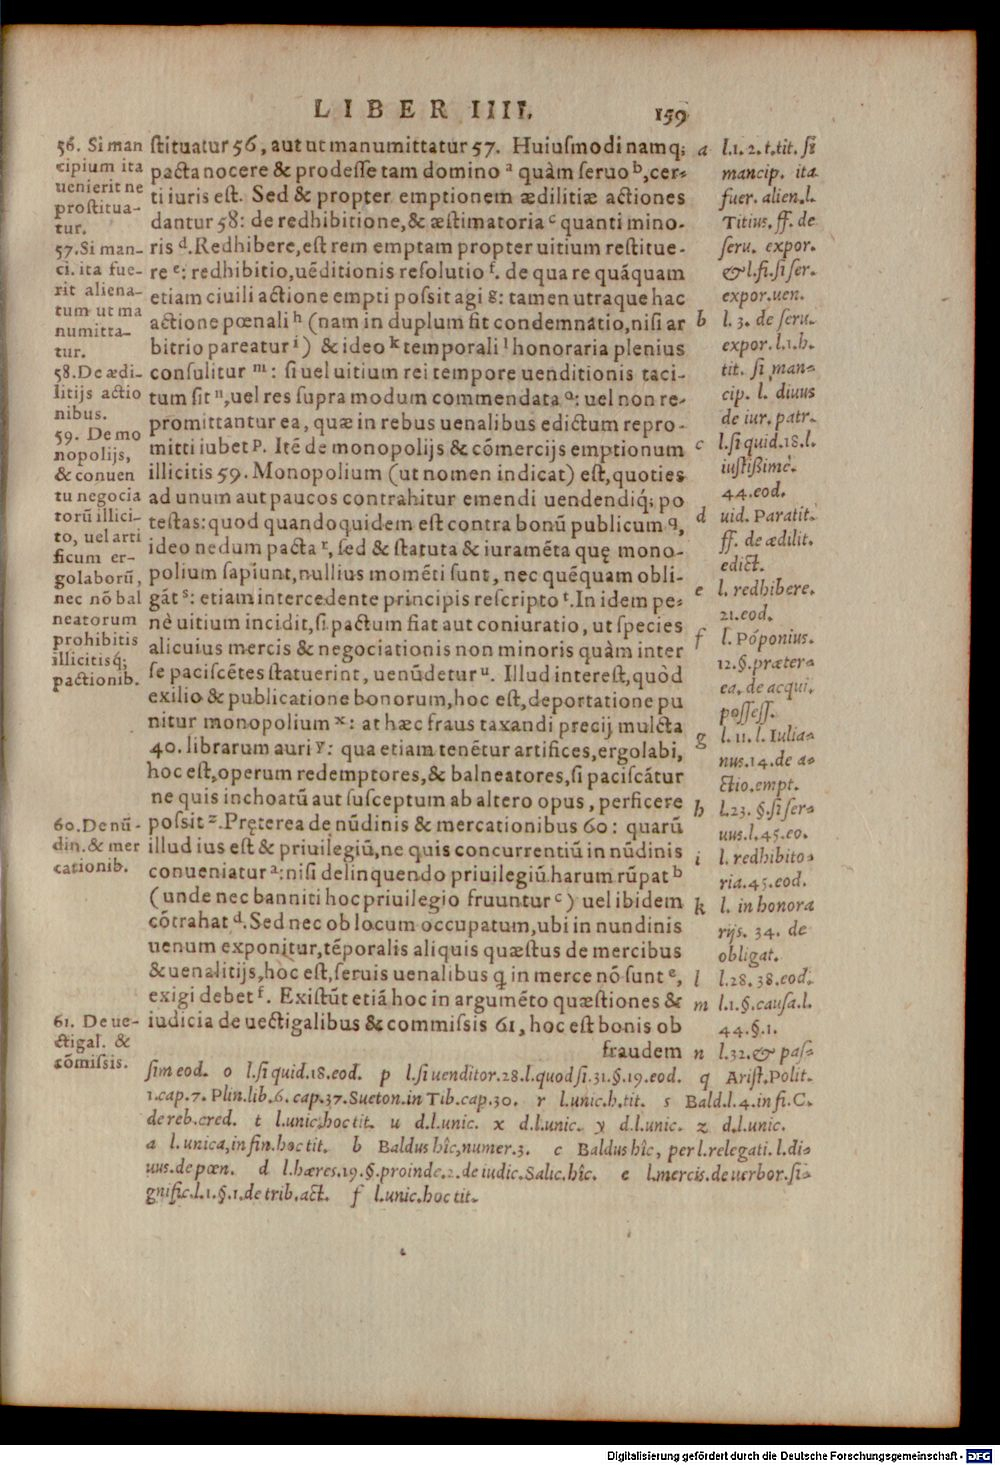 LIBER IIII. 159
56. Si man
cipium ita
uenierit ne
prostitua-
tur.
57. Si man-
ci. ita fue-
rit aliena-
tum ut ma
numitta-
tur.
58. De ædi-
litijs actio
nibus.
59. De mo
nopolijs,
& conuen
tu negocia
torũ illici-
to, uel arti
ficum er-
golaborũ,
nec nõ bal
neatorum
prohibitis
illicitisq́;
pactionib.
60. De nũ-
din. & mer
cationib.
61. De ue-
ctigal. &
cõmissis.
stituatur 56, aut ut manumittatur 57. Huiusmodi namq;
pacta nocere & prodesse tam domino a quàm seruo b, cer-
ti iuris est. Sed & propter emptionem ædilitiæ actiones
dantur 58: de redhibitione, & æstimatoria c quanti mino-
ris d. Redhibere, est rem emptam propter uitium restitue-
re e: redhibitio, uẽditionis resolutio f. de qua re quáquam
etiam ciuili actione empti possit agi g: tamen utraque hac
actione pœnali h (nam in duplum fit condemnatio, nisi ar
bitrio pareatur i) & ideo k temporali l honoraria plenius
consulitur m: si uel uitium rei tempore uenditionis taci-
tum sit n, uel res supra modum commendata o: uel non re-
promittantur ea, quæ in rebus uenalibus edictum repro-
mitti iubet p. Itẽ de monopolijs & cõmercijs emptionum
illicitis 59. Monopolium (ut nomen indicat) est, quoties
ad unum aut paucos contrahitur emendi uendendiq́; po
testas: quod quandoquidem est contra bonũ publicum q,
ideo nedum pacta r, sed & statuta & iuramẽta quę mono-
polium sapiunt, nullius momẽti sunt, nec quẽquam obli-
gát s: etiam intercedente principis rescripto t. In idem pe-
nè uitium incidit, si pactum fiat aut coniuratio, ut species
alicuius mercis & negociationis non minoris quàm inter
se paciscẽtes statuerint, uenũdetur u. Illud interest, quòd
exilio & publicatione bonorum, hoc est, deportatione pu
nitur monopolium x: at hæc fraus taxandi precij mulcta
40. librarum auri y: qua etiam tenẽtur artifices, ergolabi,
hoc est, operum redemptores, & balneatores, si paciscátur
ne quis inchoatũ aut susceptum ab altero opus, perficere
possit z. Pręterea de nũdinis & mercationibus 60: quarũ
illud ius est & priuilegiũ, ne quis concurrentiũ in nũdinis
conueniatur a: nisi delinquendo priuilegiũ harum rũpat b
(unde nec banniti hoc priuilegio fruuntur c) uel ibidem
cõtrahat d. Sed nec ob locum occupatum, ubi in nundinis
uenum exponitur, tẽporalis aliquis quæstus de mercibus
& uenalitijs, hoc est, seruis uenalibus q̃ in merce nõ sunt e,
exigi debet f. Existũt etiã hoc in argumẽto quæstiones &
iudicia de uectigalibus & commissis 61, hoc est bonis ob
fraudem
a l. 1. 2. t. tit. si
mancip. ita
fuer. alien. l.
Titius. ff. de
seru. expor.
& l. fi. si ser.
expor. uen.
b l. 3. de seru.
expor. l. 1. h.
tit. si man-
cip. l. diuus
de iur. patr.
c l. si quid. 18. l.
iustißimè.
44. eod.
d uid. Paratit.
ff. de ædilit.
edict.
e l. redhibere.
21. eod.
f l. Põponius.
12. §. præter-
ea. de acqui.
possess.
g l. 11. l. Iulia-
nus. 14. de a-
ctio. empt.
h l. 23. §. si ser-
uus. l. 45. eo.
i l. redhibito-
ria. 45. eod.
k l. in honora
rijs. 34. de
obligat.
l l. 28. 38. eod.
m l. 1. §. causa. l.
44. §. 1.
n l. 32. & pas-
sim eod. o l. si quid. 18. eod. p l. si uenditor. 28. l. quod si. 31. §. 19. eod. q Arist. Polit.
1. cap. 7. Plin. lib. 6. cap. 37. Sueton. in Tib. cap. 30. r l. unic. h. tit. s Bald. l. 4. in fi. C.
de reb. cred. t l. unic. hoc tit. u d. l. unic. x d. l. unic. y d. l. unic. z d. l. unic.
a l. unica, in fin. hoc tit. b Baldus hîc, numer. 3. c Baldus hîc, per l. relegati. l. di-
uus. de pœn. d l. hæres. 19. §. proinde. 2. de iudic. Salic. hîc. e l. mercis. de uerbor. si-
gnific. l. 1. §. 1. de trib. act. f l. unic. hoc tit.
Digitalisierung gefördert durch die Deutsche Forschungsgemeinschaft - DFG